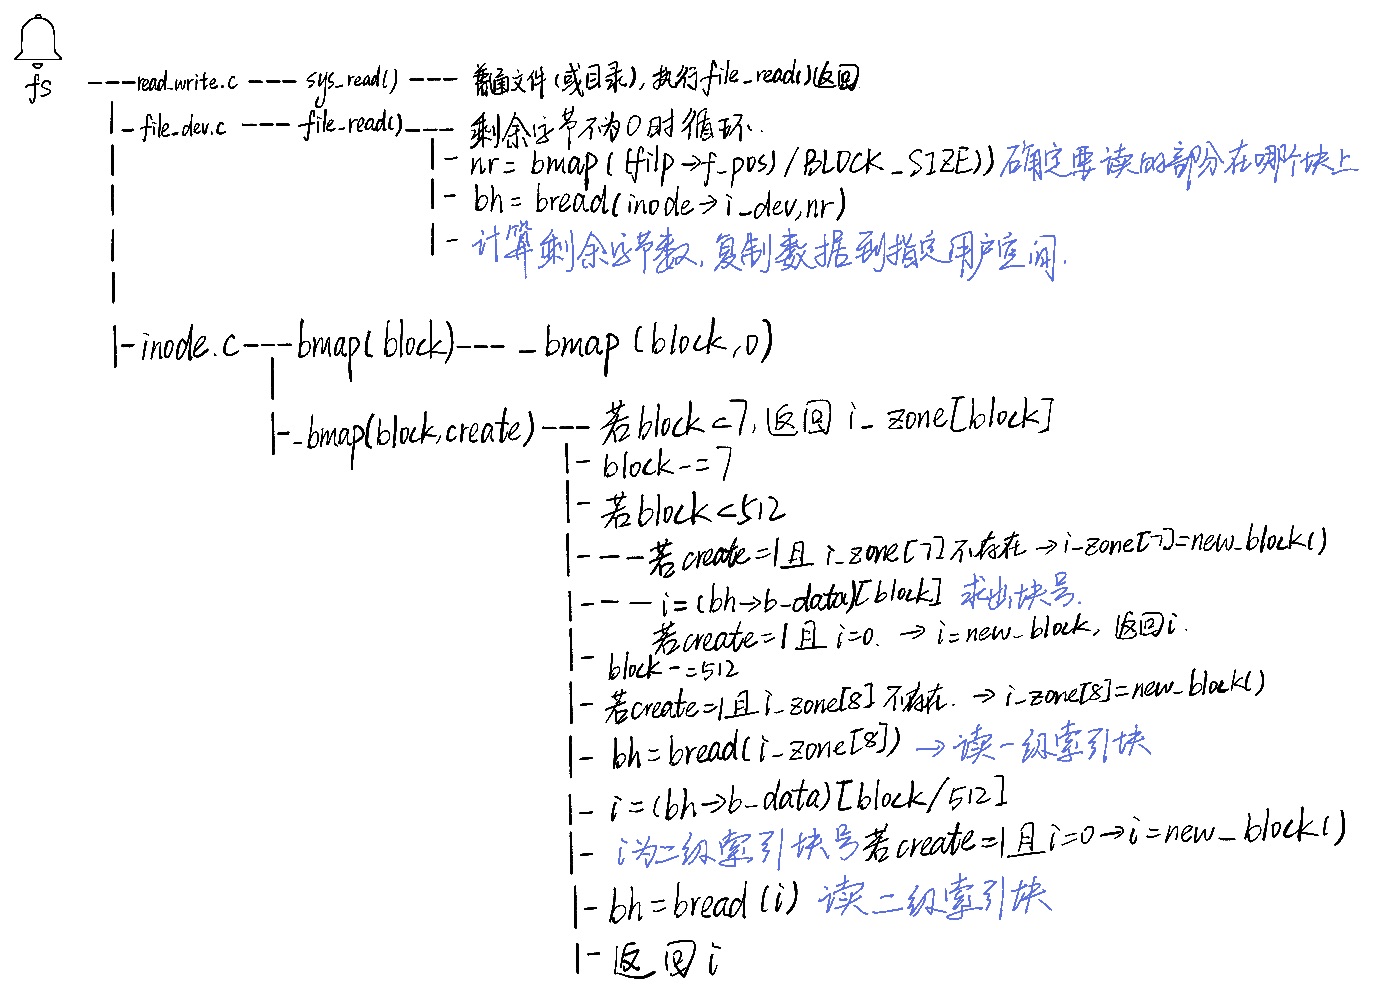 fs
---read_write.c --- sys_read() --- 普通文件(或目录),执行file_read()返回
|-file_dev.c --- file_read()--- 剩余字节不为0时循环.
|- nr=bmap((filp→f_pos)/BLOCK_SIZE)) 确定要读的部分在哪个块上
|- bh=bread(inode→i_dev,nr)
|- 计算剩余字节数,复制数据到指定用户空间.
|-inode.c---bmap(block)--- _bmap(block,0)
|-_bmap(block,create)--- 若block<7,返回i_zone[block]
|- block-=7
|- 若block<512
|---若create=1且i_zone[7]不存在→i_zone[7]=new_block()
|--- i=(bh→b_data)[block] 求出块号.
若create=1且i=0. →i=new_block,返回i.
|- block-=512
|- 若create=1且i_zone[8]不存在. →i_zone[8]=new_block()
|- bh=bread(i_zone[8]) →读一级索引块
|- i=(bh→b_data)[block/512]
|- i为二级索引块号若create=1且i=0→i=new_block()
|- bh=bread(i) 读二级索引块
|- 返回i